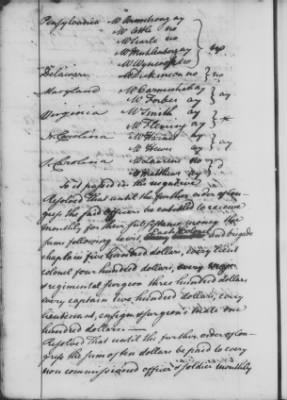 Pensylvania Mr Armstrong ay
Mr Atlee no
Mr Searle no
Mr Muhlenberg ay
Mr Wynkoop no
Delaware Mr Dickinson no } no
Maryland Mr Carmichael ay } ay
Mr Forbes ay
Virginia Mr Smith ay } *
Mr Fleming ay
N. Carolina Mr Harnett ay } ay
Mr Hewes ay
S. Carolina Mr Laurens no
Mr Matthews ay
So it passed in the negative
Resolved That until the farther order of Con-
gress the said officers be entitled to receive
monthly for their subsistence money the
sums following to wit, Each Colonel and brigade
chaplain five hundred dollars, every lieut
colonel four hundred dollars, every major
& regimental surgeon three hundred dollars
every captain two hundred dollars, every
lieutenant, ensign & surgeon's mate one
hundred dollars
Resolved That until the farther order of Con-
gress the sum of ten dollars be paid to every
non commissioned officer & soldier monthly